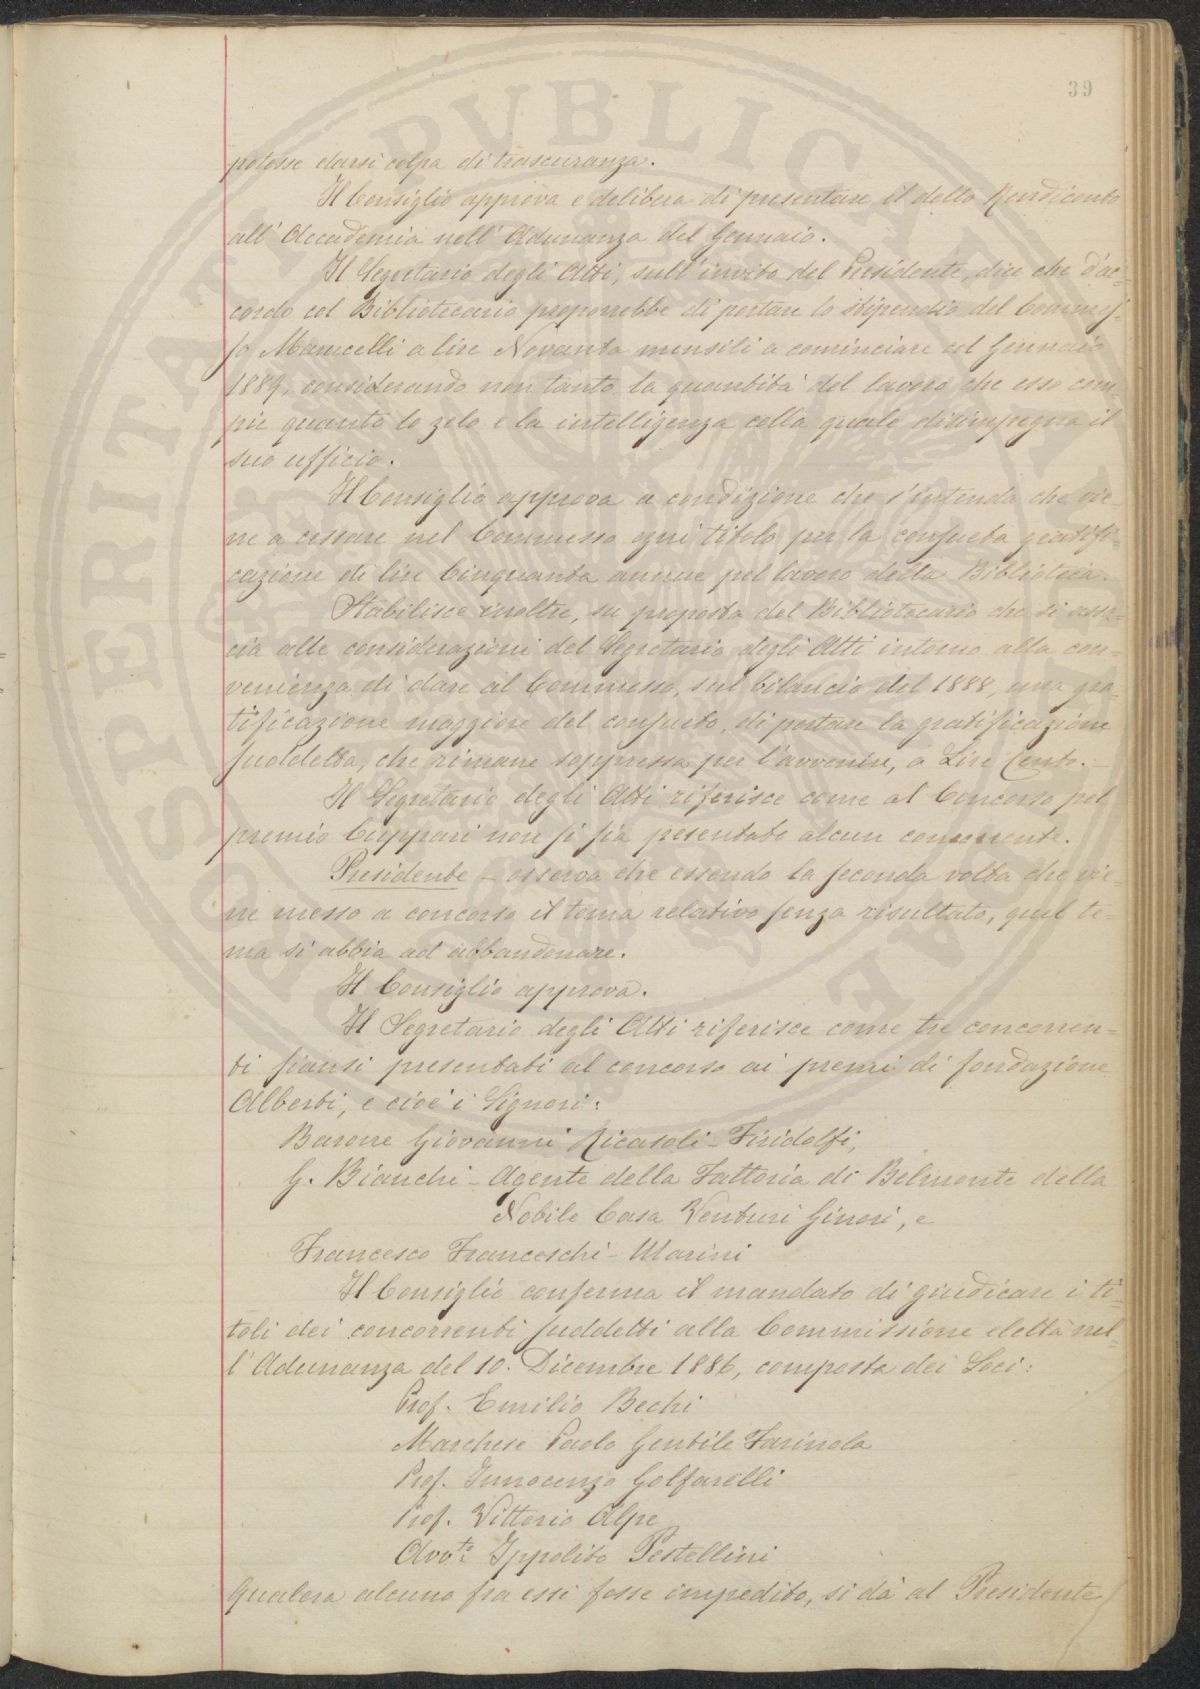 39
potesse darsi colpa di trascuranza.
Il Consiglio approva e delibera di presentare il detto Rendiconto
all' Accademia nell' Adunanza del Gennaio.
Il Segretario degli Atti, sull' invito del Presidente, dice che d'ac-
cordo col Bibliotecario proporrebbe di portare lo stipendio del Commes-
so Marucelli a lire Novanta mensili a cominciare col Gennaio
1889, considerando non tanto la quantità del lavoro che esso com-
pie quanto lo zelo e la intelligenza colla quale disimpegna il
suo ufficio.
Il Consiglio approva a condizione che s'intenda che vie-
ne a cessare nel Commesso ogni titolo per la consueta gratifi-
cazione di lire Cinquanta annue pel lavoro della Biblioteca.
Stabilisce inoltre, su proposta del Bibliotecario che si asso-
cia alle considerazioni del Segretario degli Atti intorno alla con-
venienza di dare al Commesso, sul bilancio del 1888, una gra-
tificazione maggiore del consueto, di portare la gratificazione
suddetta, che rimane soppressa per l'avvenire, a Lire Cento.-
Il Segretario degli Atti riferisce come al Concorso pel
premio Cuppari non si sia pesentato alcun concorrente.
Presidente - osserva che essendo la seconda volta che vie-
ne messo a concorso il tema relativo senza risultato, quel te-
ma si abbia ad abbandonare.
Il Consiglio approva.
Il Segretario degli Atti riferisce come tre concorren-
ti siansi presentati al concorso ai premi di fondazione
Alberti, e cioè i Signori:
Barone Giovanni Ricasoli-Firidolfi,
G. Bianchi - Agente della Fattoria di Belmonte della
Nobile Casa Venturi Ginori, e
Francesco Franceschi-Marini
Il Consiglio conferma il mandato di giudicare i ti-
toli dei concorrenti suddetti alla Commissione eletta nel-
l' Adunanza del 10. Dicembre 1886, composta dei Soci:
Prof. Emilio Bechi
Marchese Paolo Gentile Farinola
Prof. Innocenzo Golfarelli
Prof. Vittorio Alpe
Avv.to Ippolito Pestellini
Qualora alcuno fra essi fosse impedito, si dà al Presidente